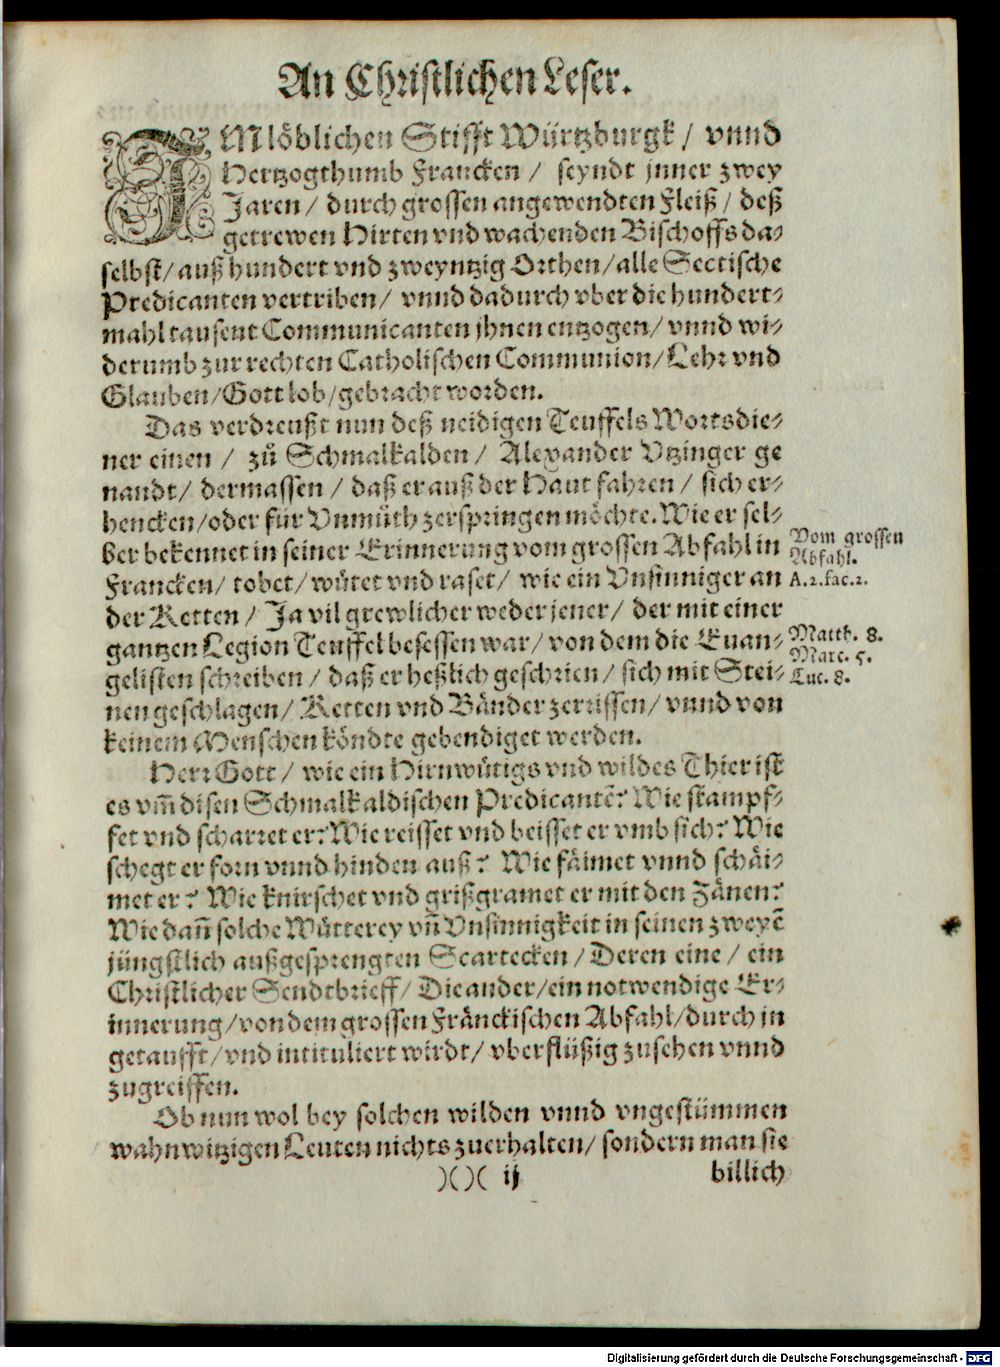 An Christlichen Leser.
IM löblichen Stifft Würtzburgk / vnnd
Hertzogthumb Francken / seyndt jnner zwey
Jaren / durch grossen angewendten Fleiß / deß
getrewen Hirten vnd wachenden Bischoffs da-
selbst / auß hundert vnd zweyntzig Orthen / alle Sectische
Predicanten vertriben / vnnd dadurch vber die hundert-
mahl tausent Communicanten jhnen entzogen / vnnd wi-
derumb zur rechten Catholischen Communion / Lehr vnd
Glauben / Gott lob / gebracht worden.
Das verdreußt nun deß neidigen Teuffels Wortsdie-
ner einen / zů Schmalkalden / Alexander Vtzinger ge
nandt / dermassen / daß er auß der Haut fahren / sich er-
hencken / oder für Vnmůth zerspringen möchte. Wie er sel-
ber bekennet in seiner Erinnerung vom grossen Abfahl in
Francken / tobet / wütet vnd raset / wie ein Vnsinniger an
der Ketten / Ja vil grewlicher weder jener / der mit einer
gantzen Legion Teuffel besessen war / von dem die Euan-
gelisten schreiben / daß er heßlich geschrien / sich mit Stei-
nen geschlagen / Ketten vnd Bänder zerrissen / vnnd von
keinem Menschen köndte gebendiget werden.
Vom grossen
Abfahl.
A.2.fac.2.
Matth. 8.
Marc. 5.
Luc. 8.
Herr Gott / wie ein Hirnwütigs vnd wildes Thier ist
es vm̃ disen Schmalkaldischen Predicantẽ? Wie stampf-
fet vnd scharret er? Wie reisset vnd beisset er vmb sich? Wie
schegt er forn vnnd hinden auß? Wie fäimet vnnd schäi-
met er? Wie knirschet vnd grißgramet er mit den Zänen?
Wie dañ solche Wütterey vñ Vnsinnigkeit in seinen zweyẽ
jüngstlich außgesprengten Scartecken / Deren eine / ein
Christlicher Sendtbrieff / Die ander / ein notwendige Er-
innerung / von dem grossen Fränckischen Abfahl / durch jn
getaufft / vnd intituliert wirdt / vberflüßig zusehen vnnd
zugreiffen.
Ob nun wol bey solchen wilden vnnd vngestümmen
wahnwitzigen Leuten nichts zuerhalten / sondern man sie
)()( ij
billich
Digitalisierung gefördert durch die Deutsche Forschungsgemeinschaft - DFG